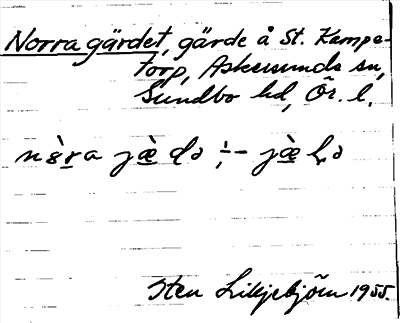 Norra gärdet, gärde å St. Kampe-
torp, Askersunds sn,
Sundbo hd, Ör. l.
nòra jæ̀ də ÷ jæ̀
Sten Liljebjörn 1955.